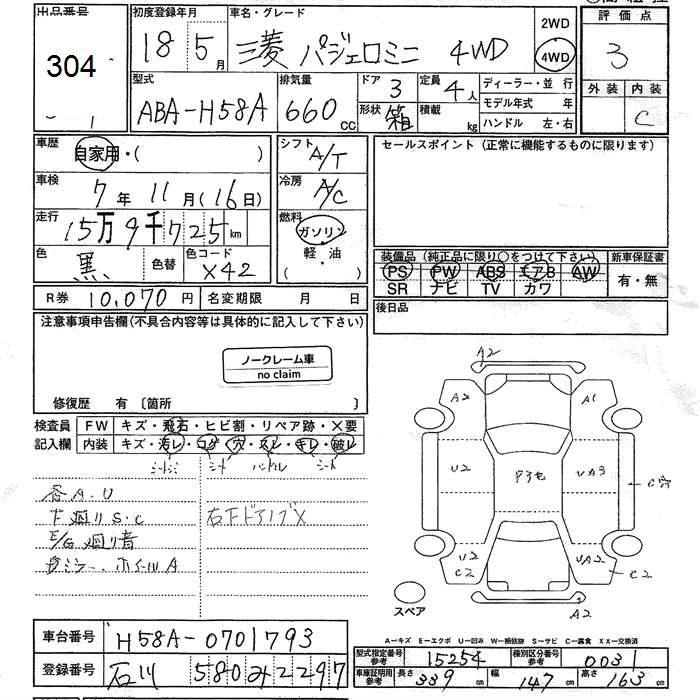 出品番号
304
初度登録年月 車名・グレード
18 5月 三菱 パジェロミニ 4WD
2WD
4WD
評価点
3
外装 内装
C
型式 排気量 ドア 定員
ABA-H58A 660cc 3 4人
形状 箱 積載 kg
ディーラー・並 行
モデル年式 年
ハンドル 左・右
車歴 自家用・( )
シフト A/T
セールスポイント (正常に機能するものに限ります)
車検 7年 11月(16日)
冷房 A/C
走行 15万9千725km
燃料 ガソリン
軽・油
( )
色 黒 色替 色コード X42
装備品 (純正品に限り○をつけて下さい) 新車保証書
PS PW ABS エアB AW
SR ナビ TV カワ
有・無
R券 10,070円 名変期限 月 日
後日品
注意事項申告欄(不具合内容等は具体的に記入して下さい)
ノークレーム車
no claim
修復歴 有 〔箇所 〕
検査員 FW キズ・飛石・ヒビ割・リペア跡・×要
記入欄 内装 キズ・汚レ・コゲ・穴・スレ・キレ・破レ
シート ハンドル シート
各A・U
下廻りS・C
E/G廻り音
ホイールA
右FドアノブX
A2
A2 A1
U2 UA3
U2 C2
UA2 C2
A2
スペア
A-キズ E-エクボ U-凹み W-補修跡 S-サビ C-腐食 XX-交換済
車台番号 H58A-0701793
型式指定番号 参考 15254 種別区分番号 参考 0031
登録番号 石川 580 み 2297
車庫証明用 参考 長さ 339cm 幅 147cm 高さ 163cm